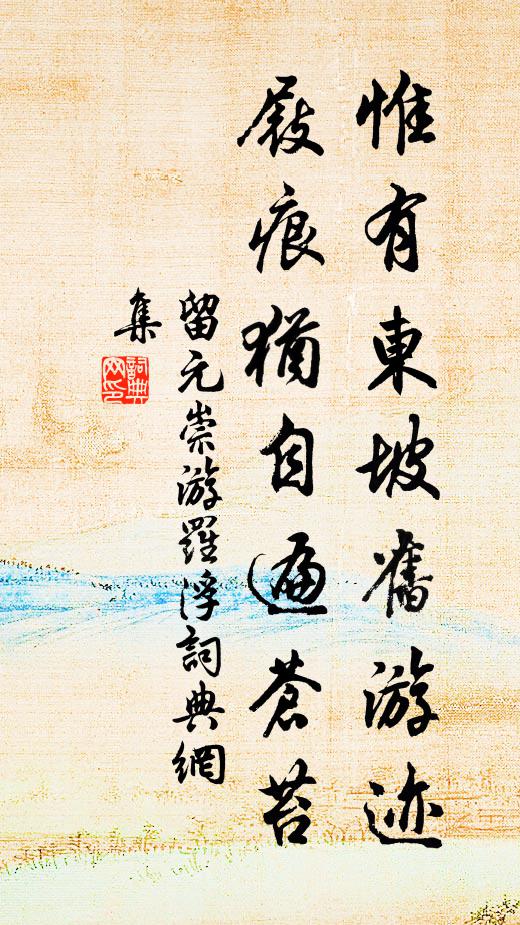 惟有東坡舊游迹
屐痕猶自遍蒼苔
留元崇游羅浮詞典網
集
詞典
网印